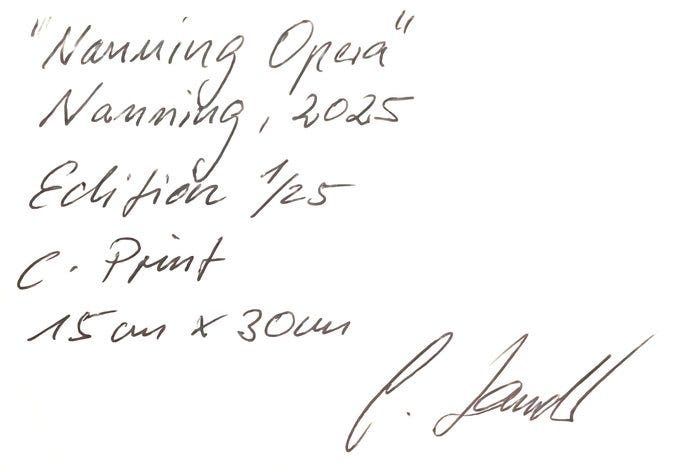 "Nanning Opera"
Nanning, 2025
Edition 1/25
C. Print
15cm x 30cm